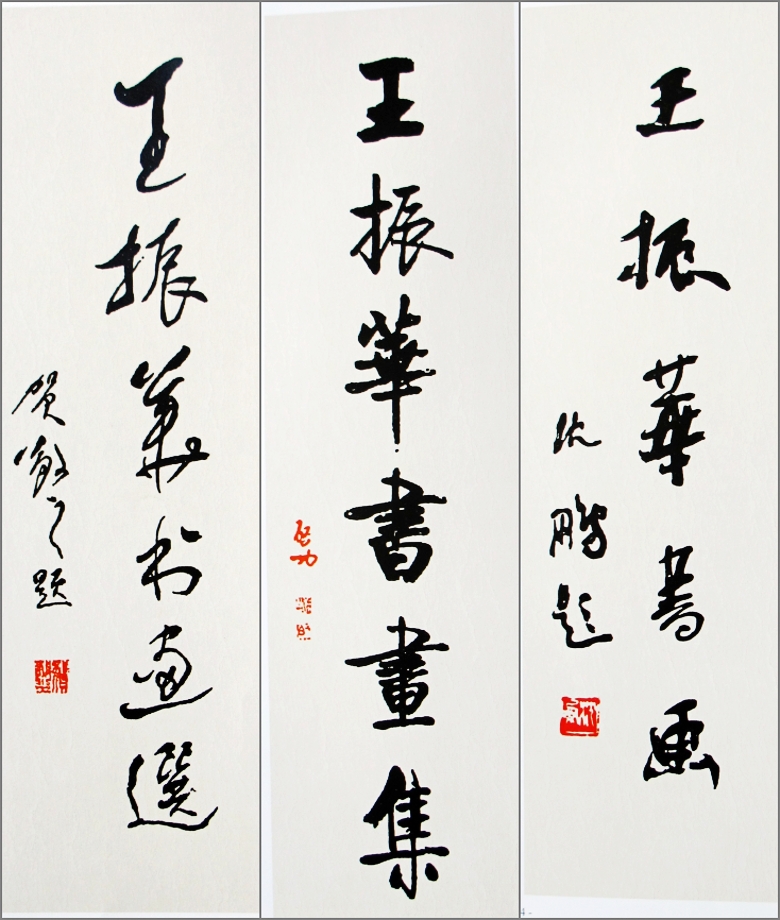 王振華書画
沈鵬题
王振華書畫集
启功
王振華书画選
贺敬之题